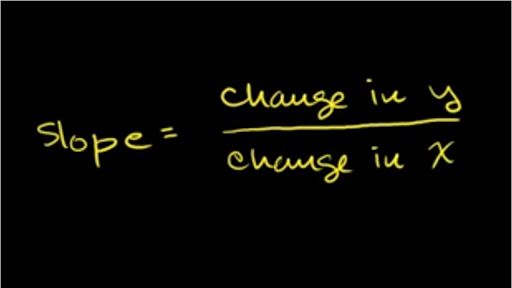 slope = change in y
change in x